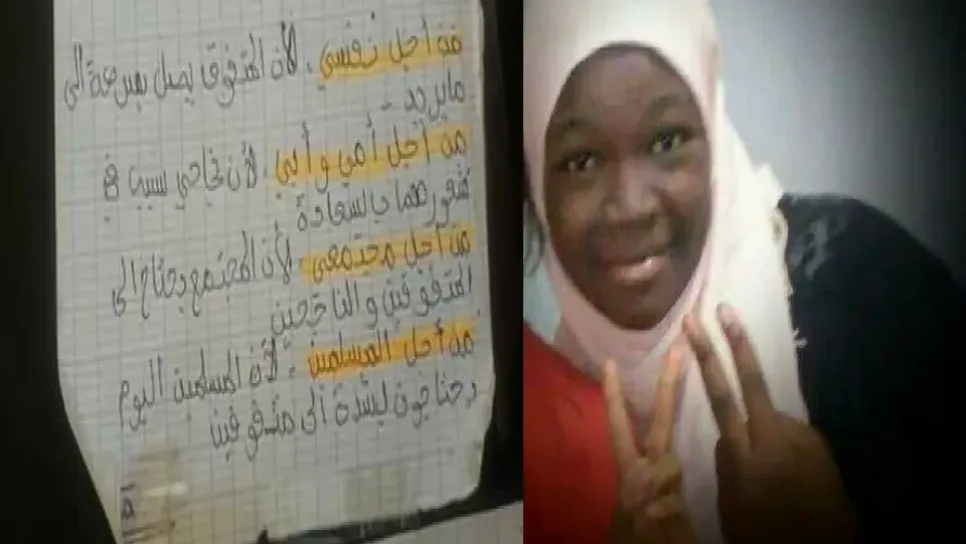 من أجل نفسي، لأن المتفوق يصل بسرعة الى
مايريد -
من أجل أمي وأبي، لأن نجاحي سبب في
شعورهما بالسعادة
من أجل مجتمعي، لأن المجتمع يحتاج الى
المتفوقين والناجحين
من أجل المسلمين، لأن المسلمين اليوم
يحتاجون لبشدة الى متفوقين